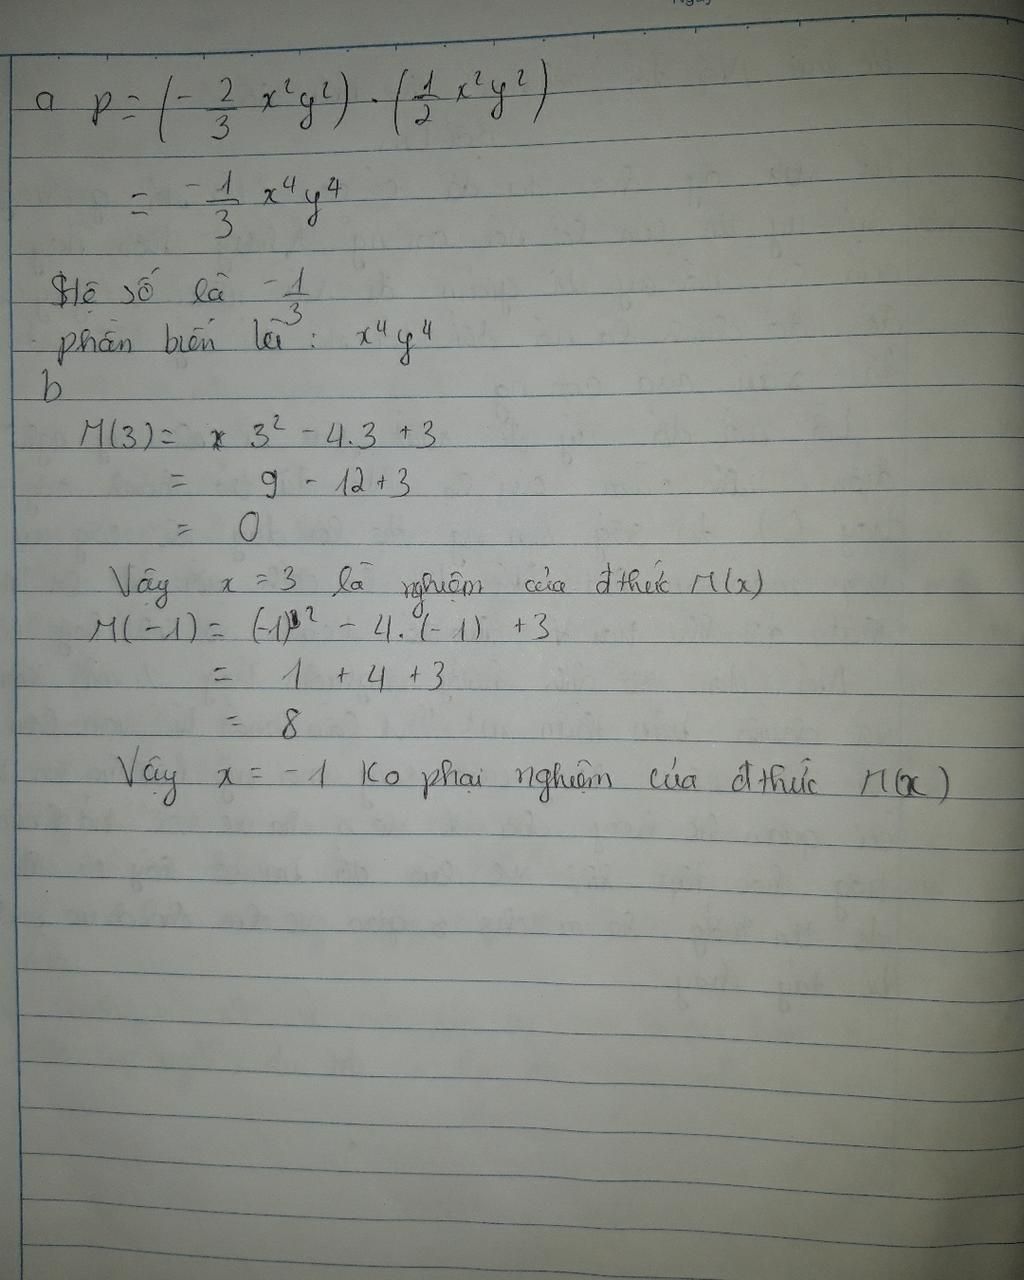 a P = (-2/3 x²y²) . (1/2 x²y²)
= -1/3 x⁴y⁴
Hệ số là -1/3
phần biến là : x⁴y⁴
b
M(3) = 3² - 4.3 + 3
= 9 - 12 + 3
= 0
Vậy x = 3 là nghiệm của đthức M(x)
M(-1) = (-1)² - 4.(-1) + 3
= 1 + 4 + 3
= 8
Vậy x = -1 Ko phại nghiệm của đthức M(x)